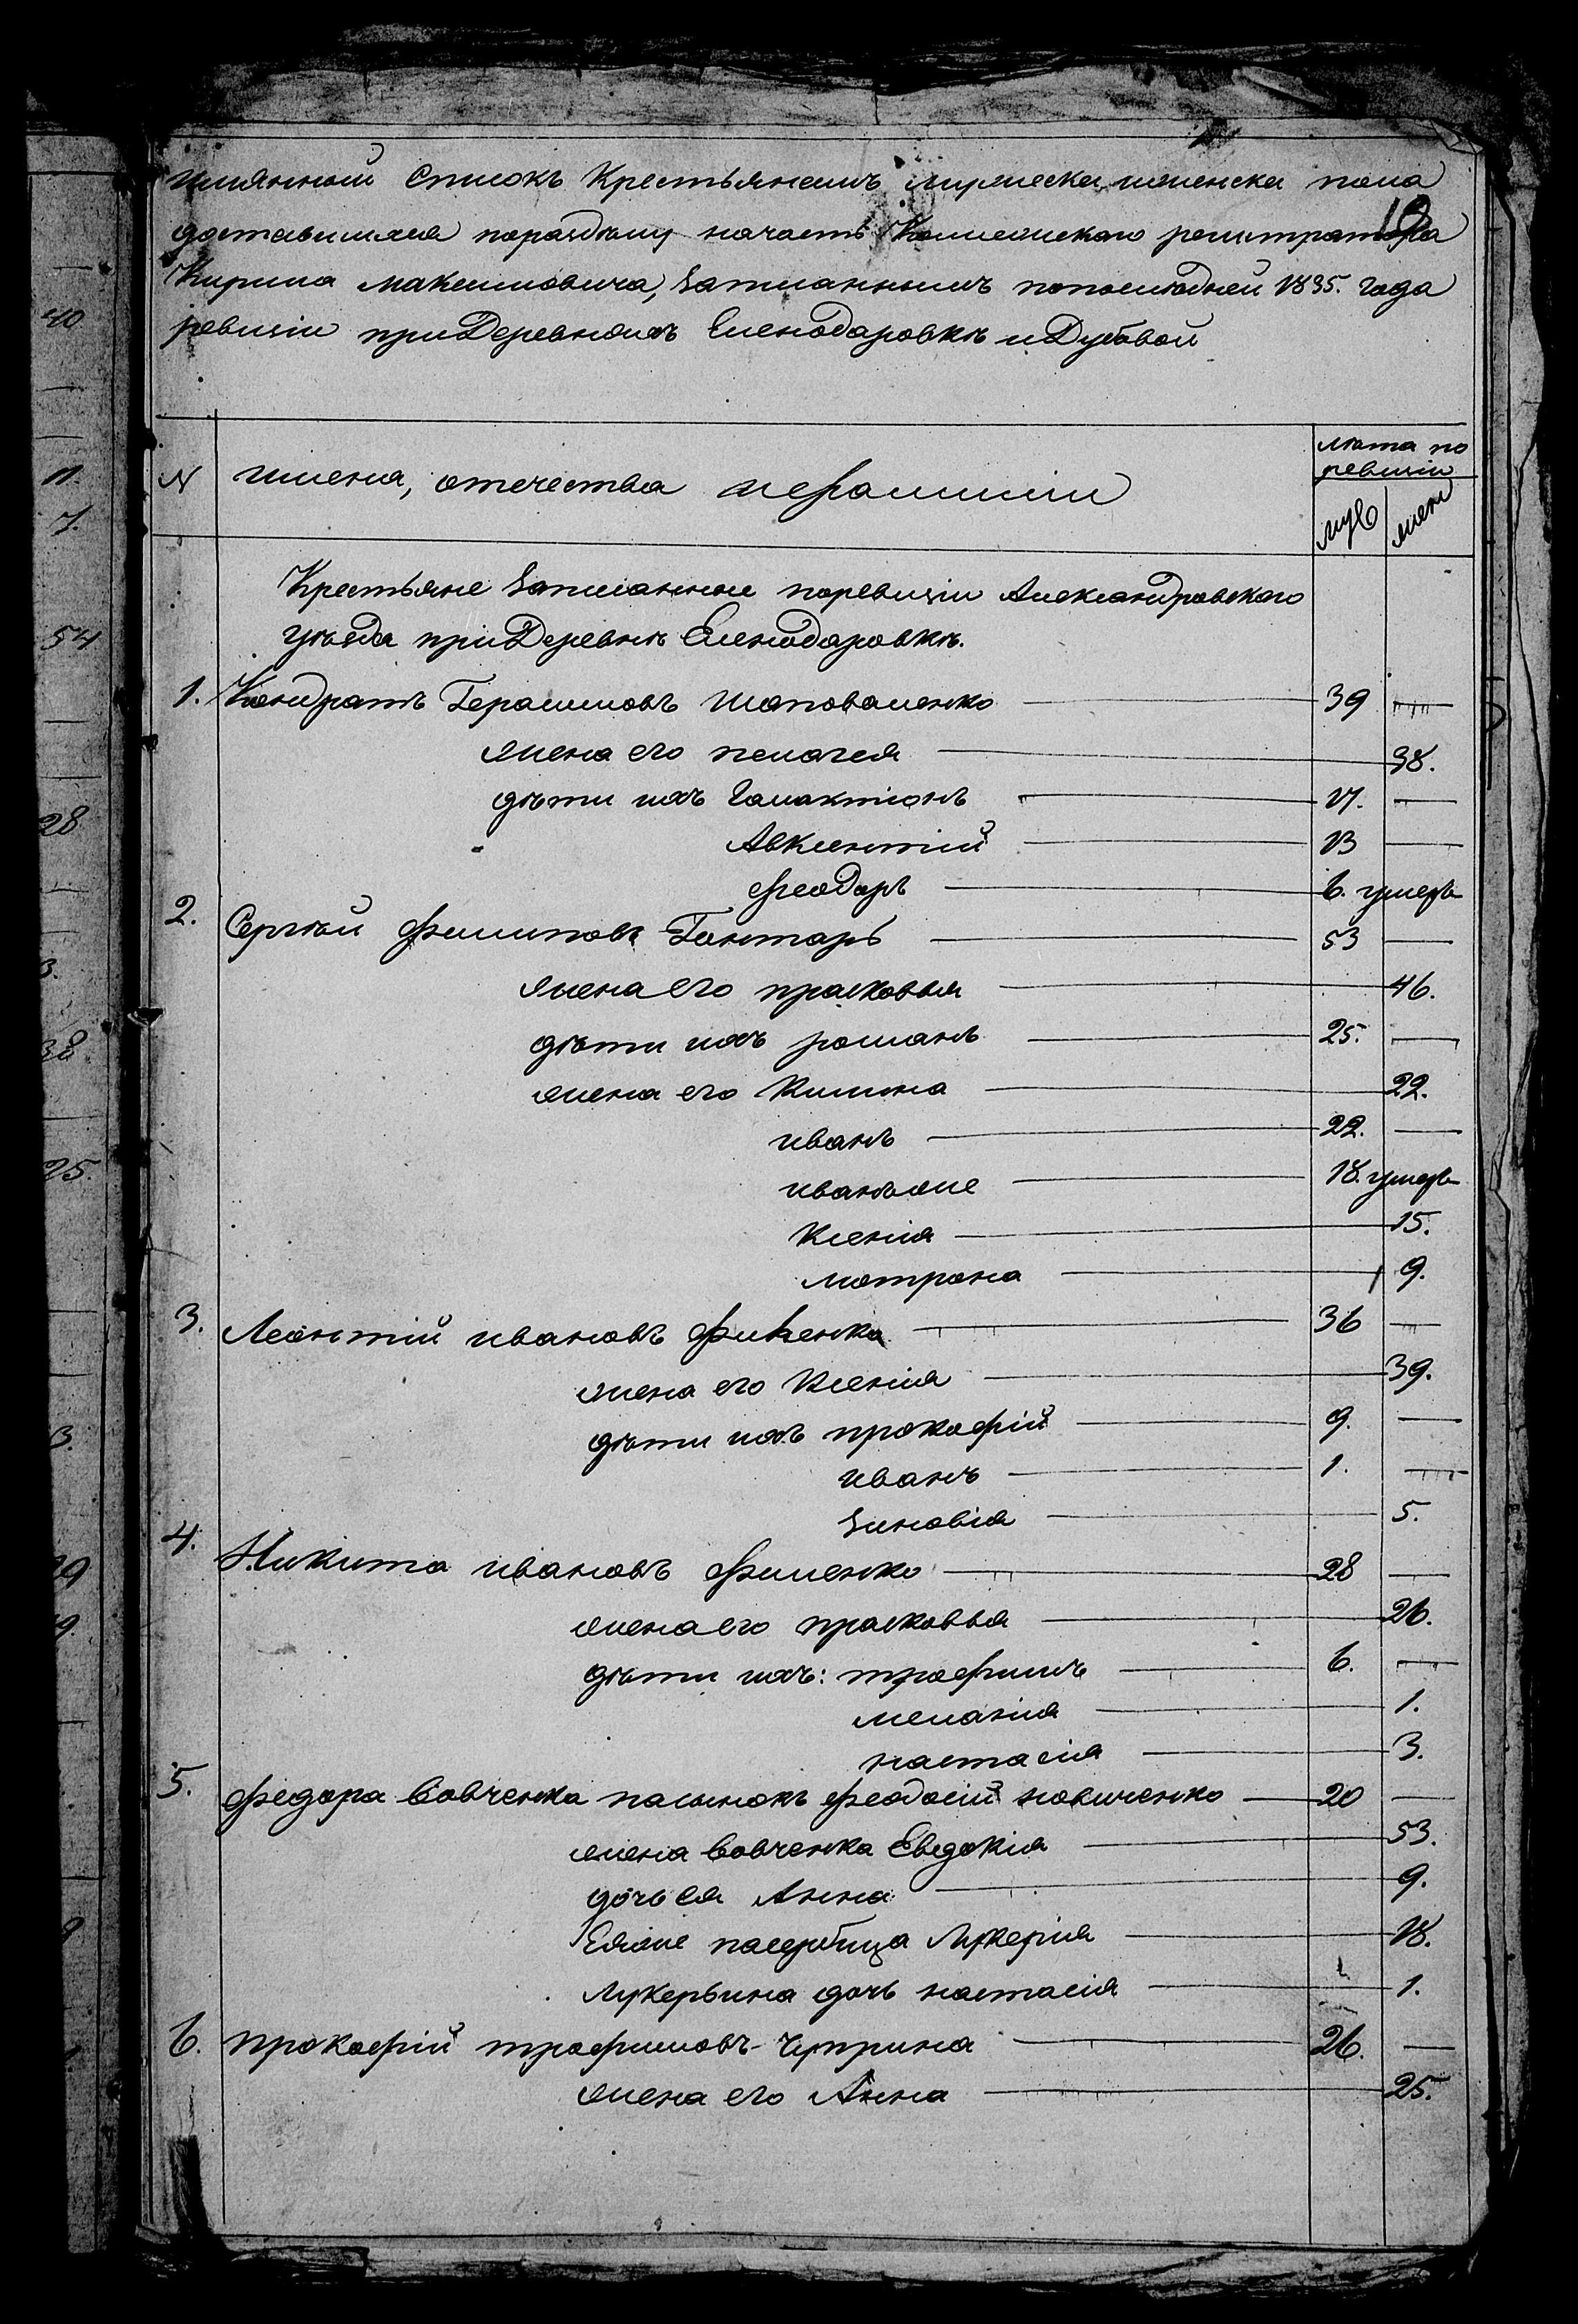 имянный Списокъ Крестьянамъ мужеска, и женска пола
доставшихся поразделу начасть Колежскаго регистратора
Кирила максимовича, записаннымъ попоследней 1835. года
ревизiи при Деревняхъ Еленодаровкѣ и Дубовой
N имена, отечества и фамилiи
лѣта по
ревизiи
муж жен
Крестьяне записанные поревизiи Александровского
уѣзда при Деревнѣ Еленодаровкѣ.
1. Кондратъ Герасимовъ Шаповаленко 39
жена его пелагея 38.
дѣти ихъ Галактiонъ 17.
Авксентiй 13
феодоръ 6. умеръ
2. Сергѣй Филиповъ Гонтарь 53
жена его прасковья 46.
дѣти ихъ романъ 25.
жена его Килина 22.
иванъ 22.
иванъ же 18. умеръ
Ксенiя 15.
мотрона 9.
3. Леонтiй ивановъ 36
жена его Ксенiя 39.
дѣти ихъ прокофiй 9.
иванъ 1.
Зиновiя 5.
4. Никита ивановъ Фименко 28
жена его прасковья 26.
дѣти ихъ: трофимъ 6.
меланiя 1.
настасiя 3.
5. Федора Вовченка пасынокъ феодосiй 20
жена Вовченка Евдокiя 53.
дочь ея Анна 9.
Еяже пасербица Лукерiя 18.
Лукерьина дочь настасiя 1.
6. прокофiй трофимовъ Чуприна 26.
жена его Анна 25.
40
11.
7.
54
28
3.
38
25.
3.